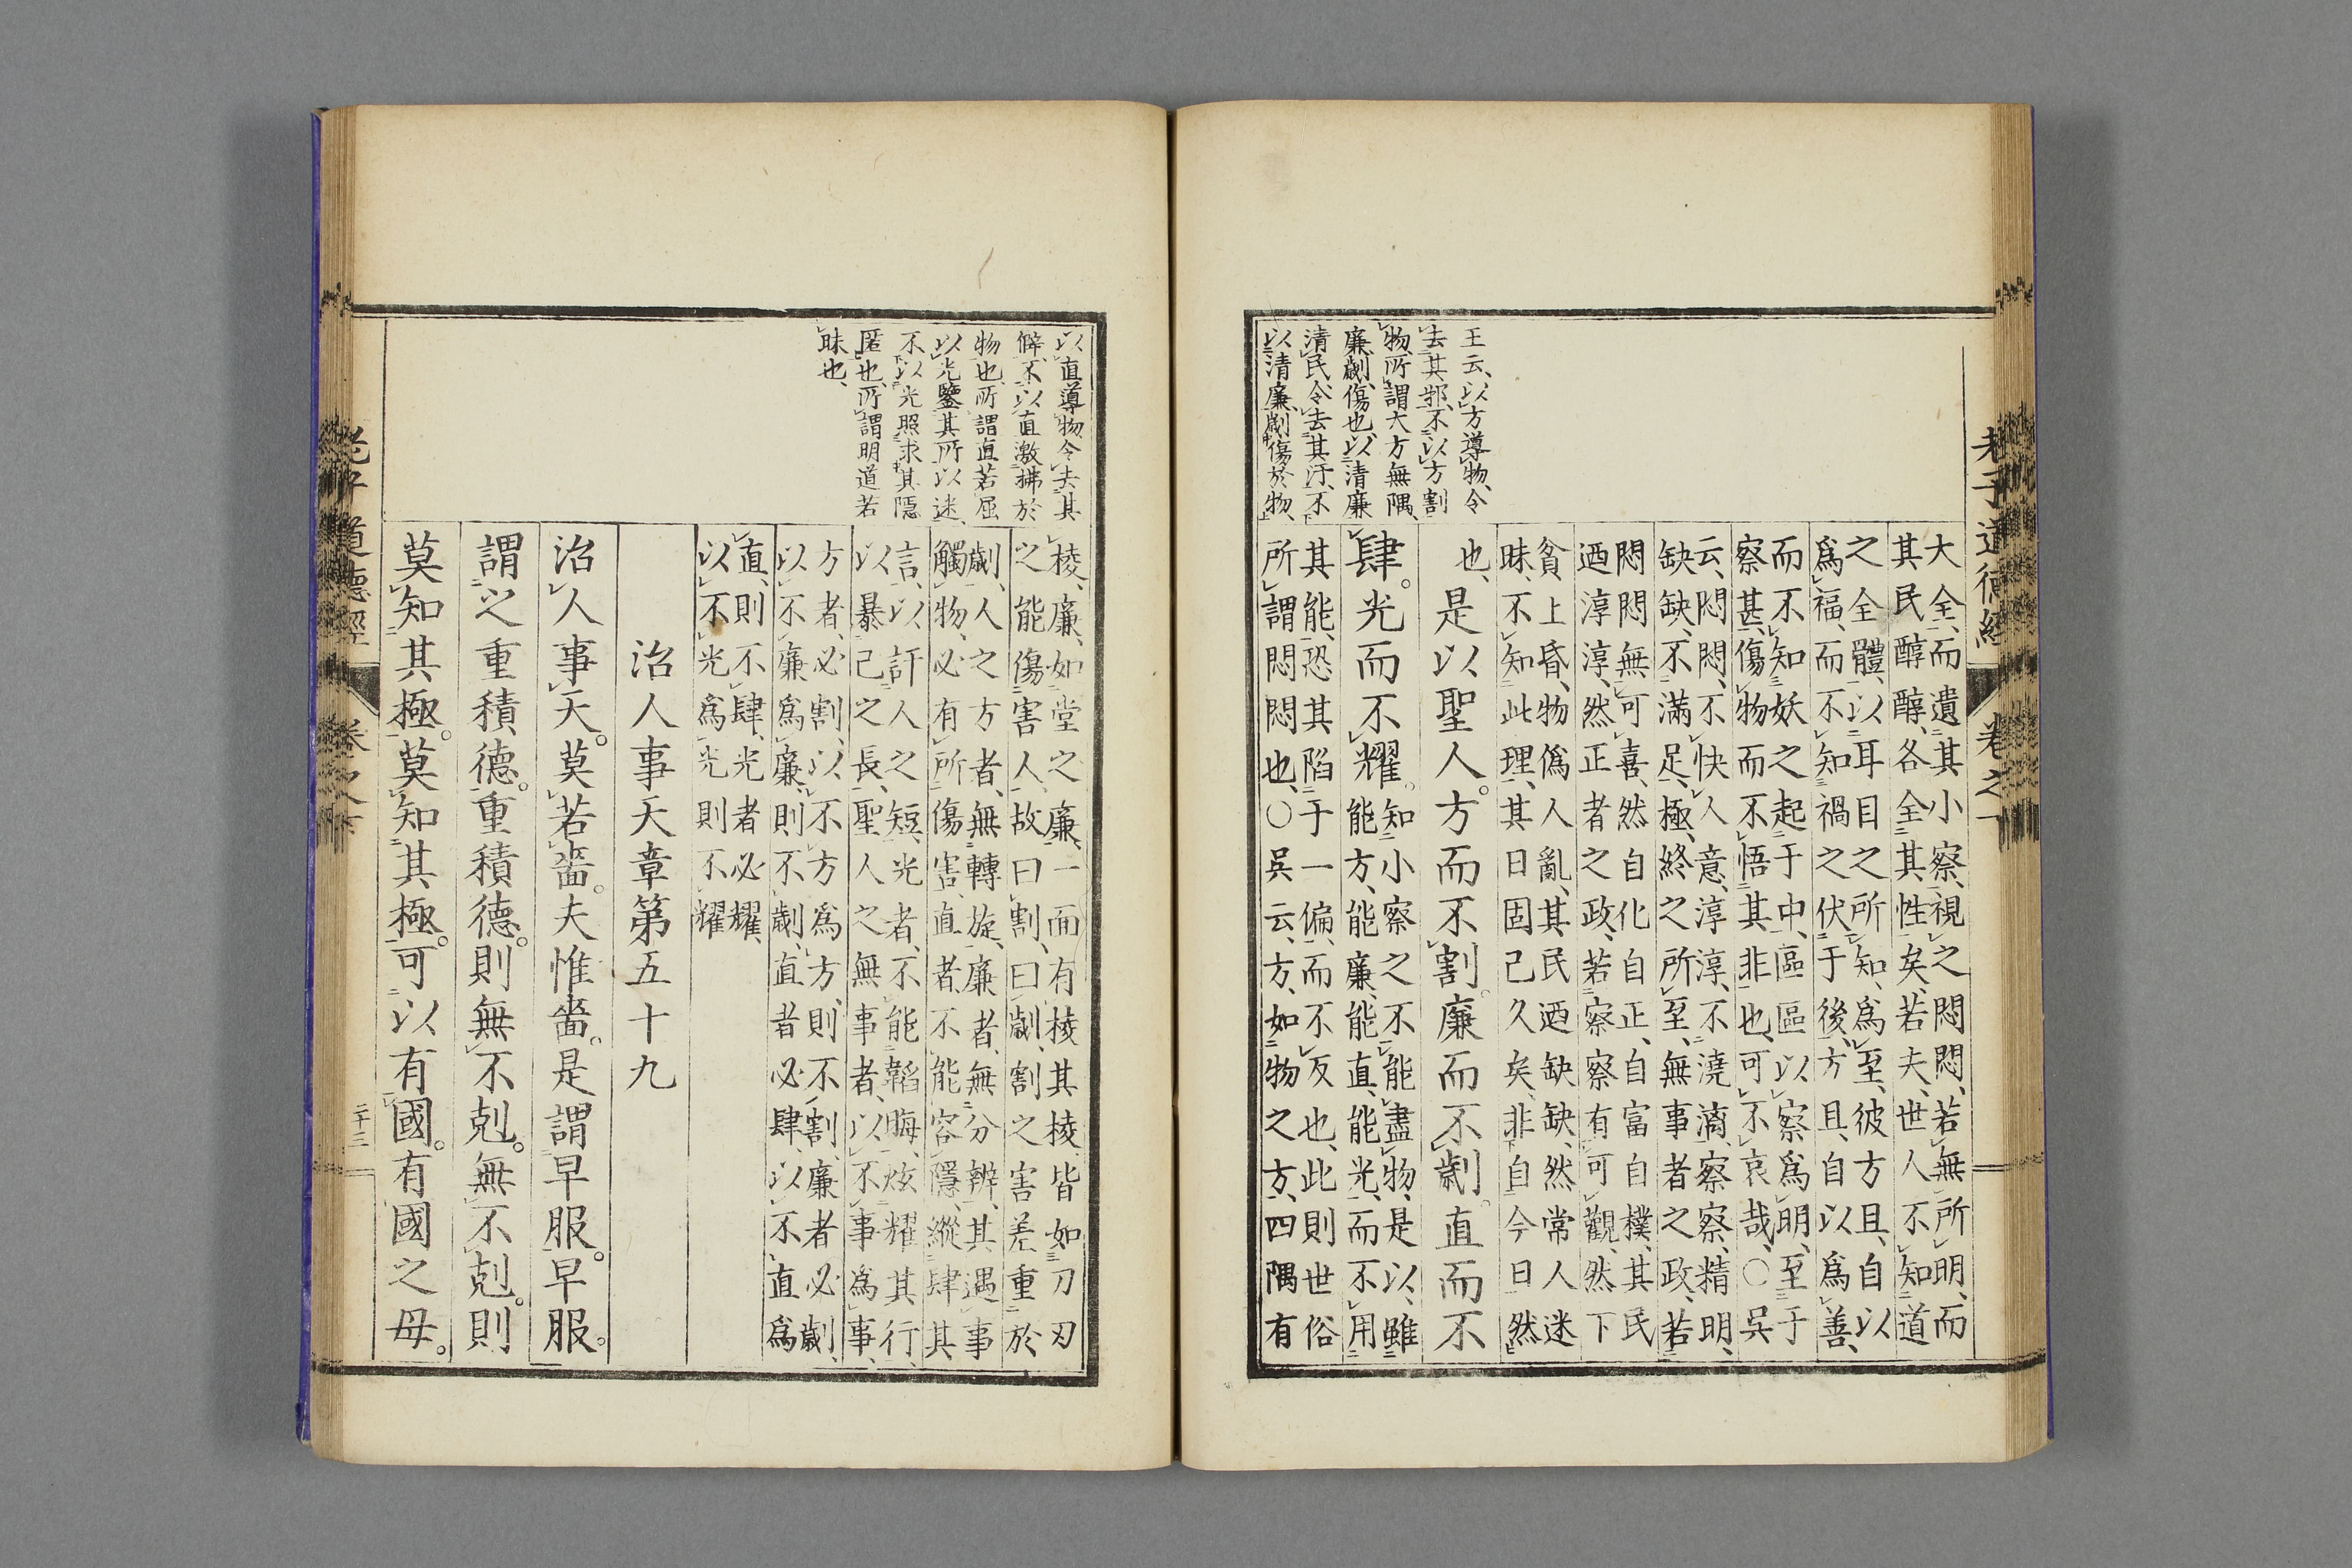 老子道德經
卷之下
王云、以方導物、令
去其邪、不以方割
物、所謂大方無隅、
廉劌傷也、以清廉
清民令去其汙、不
以清廉劌傷於物、
大全、而遺其小察、視之悶悶、若無所明、而
其民醇醇、各全其性矣、若夫世人不知道
之全體、以耳目之所知、爲至、彼方且自以
爲福、而不知禍之伏于後、方且自以爲善、
而不知妖之起于中、區區以察爲明、至于
察甚、傷物而不悟其非也、可不哀哉、○吳
云、悶悶、不快人意、淳淳、不澆漓、察察、精明、
缺缺、不滿足、極、終之所至、無事者之政、若
悶悶無可喜、然自化自正、自富自樸、其民
迺淳淳、然正者之政、若察察有可觀、然下
貧上昏、物僞人亂、其民迺缺缺、然常人迷
昧、不知此理、其日固已久矣、非自今日然
也、是以聖人。方而不割。廉而不劌。直而不
肆。光而不耀。知小察之不能盡物、是以、雖
能方、能廉、能直、能光、而不用
其能、恐其陷于一偏、而不反也、此則世俗
所謂悶悶也、○吳云、方、如物之方、四隅有
以直導物、令去其
僻、不以直激拂於
物也、所謂直若屈
以光鑒其所以迷、
不以光照求其隱
匿也、所謂明道若
昧也、
棱、廉、如堂之廉、一面有棱、其棱皆如刀刃
之能傷害人、故曰割、曰劌、割之害差重於
劌、人之方者、無轉旋、廉者、無分辨、其遇事
觸物、必有所傷害、直者、不能容隱、縱肆其
言、以訐人之短、光者、不能韜晦、炫耀其行、
以暴己之長、聖人之無事者、以不事爲事、
方者、必割、以不方爲方、則不割、廉者必劌、
以不廉爲廉、則不劌、直者必肆、以不直爲
直、則不肆、光者必耀、
以不光爲光則不耀
治人事天章第五十九
治人事天。莫若嗇。夫惟嗇。是謂早服。早服。
謂之重積德。重積德。則無不剋。無不剋。則
莫知其極。莫知其極。可以有國。有國之母。
老子道德經
卷之下
二十三